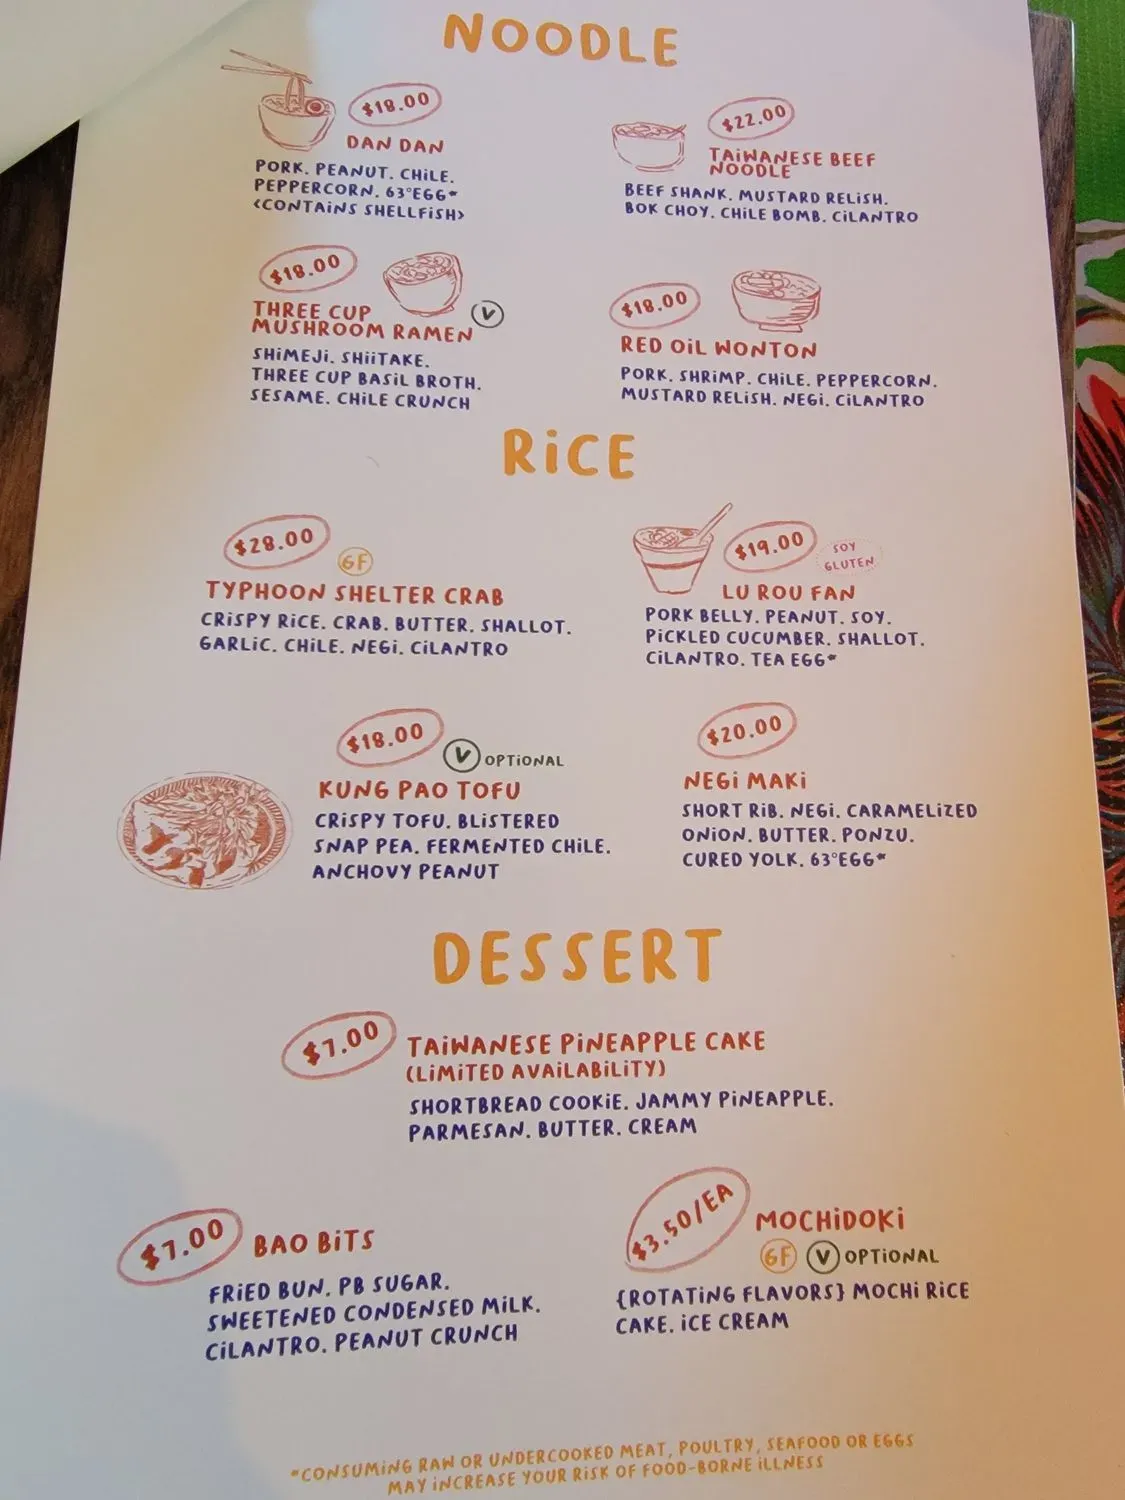 NOODLE
$18.00
DAN DAN
PORK. PEANUT. CHiLE.
PEPPERCORN. 63°EGG*
<CONTAiNS SHELLFiSH>
$22.00
TAiWANESE BEEF
NOODLE
BEEF SHANK. MUSTARD RELiSH.
BOK CHOY. CHiLE BOMB. CiLANTRO
$18.00
THREE CUP
MUSHROOM RAMEN
V
SHiMEJi. SHiiTAKE.
THREE CUP BASiL BROTH.
SESAME. CHiLE CRUNCH
$18.00
RED OiL WONTON
PORK. SHRiMP. CHiLE. PEPPERCORN.
MUSTARD RELiSH. NEGi. CiLANTRO
RiCE
$28.00
GF
TYPHOON SHELTER CRAB
CRiSPY RiCE. CRAB. BUTTER. SHALLOT.
GARLiC. CHiLE. NEGi. CiLANTRO
$19.00
SOY
GLUTEN
LU ROU FAN
PORK BELLY. PEANUT. SOY.
PiCKLED CUCUMBER. SHALLOT.
CiLANTRO. TEA EGG*
$18.00
V OPTiONAL
KUNG PAO TOFU
CRiSPY TOFU. BLiSTERED
SNAP PEA. FERMENTED CHiLE.
ANCHOVY PEANUT
$20.00
NEGi MAKi
SHORT RiB. NEGi. CARAMELiZED
ONiON. BUTTER. PONZU.
CURED YOLK. 63°EGG*
DESSERT
$7.00
TAiWANESE PiNEAPPLE CAKE
(LiMiTED AVAiLABiLiTY)
SHORTBREAD COOKiE. JAMMY PiNEAPPLE.
PARMESAN. BUTTER. CREAM
$7.00
BAO BiTS
FRiED BUN. PB SUGAR.
SWEETENED CONDENSED MiLK.
CiLANTRO. PEANUT CRUNCH
$3.50/EA
MOCHiDOKi
GF V OPTiONAL
{ROTATiNG FLAVORS} MOCHi RiCE
CAKE. iCE CREAM
*CONSUMiNG RAW OR UNDERCOOKED MEAT, POULTRY, SEAFOOD OR EGGS
MAY iNCREASE YOUR RiSK OF FOOD-BORNE iLLNESS